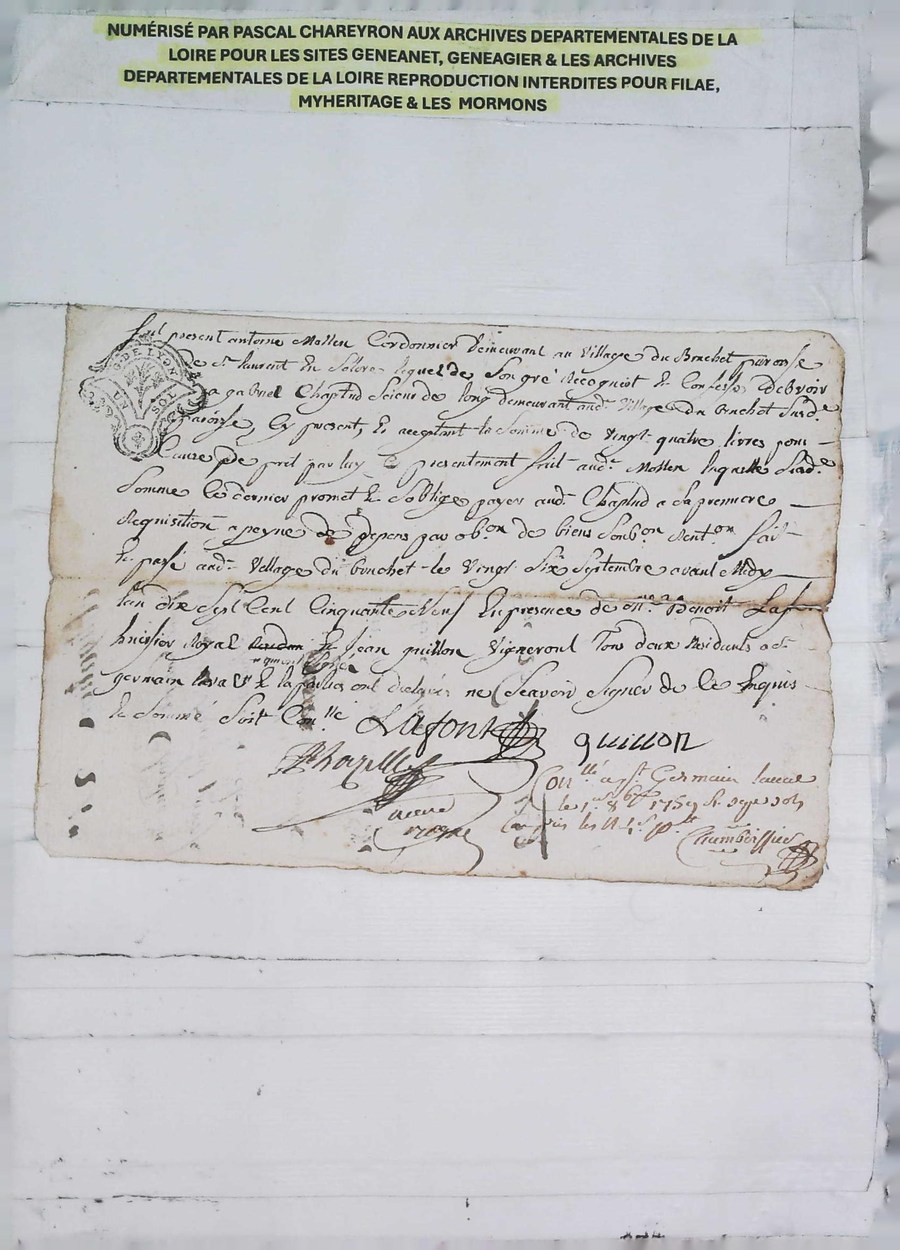 NUMÉRISÉ PAR PASCAL CHAREYRON AUX ARCHIVES DEPARTEMENTALES DE LA
LOIRE POUR LES SITES GENEANET, GENEAGIER & LES ARCHIVES
DEPARTEMENTALES DE LA LOIRE REPRODUCTION INTERDITES POUR FILAE,
MYHERITAGE & LES MORMONS
G. DE LYON
UN SOL
present antoine Mollen Cordonnier demeurant au Village du Bouchet paroisse
de St laurent En Solore lequel de Son gré Recognoit Et Confesse Debvoir
a gabriel Chaptud Scieur de long demeurant audt Village du bouchet Susde
paroisse, Cy present, Et acceptant la Somme de Vingt quatre livres pour
Cause de prit par luy presentement fait audt Mollen laquelle Susde
Somme Ce dernier promet Et S'oblige payer audt Chaptud a Sa premiere
Requisition a peyne de depens par obon de biens fait
Et passé audt Village du bouchet le Vingt Six Septembre avant Midy
l'an dix Sept Cent Cinquante Neuf En presence de Me Benoit Lafont
huissier Royal Et Jean guillon Vigneront Tous deux Residants a St
germain laval Et la parties ont declaré ne Scavoir Signer de Ce Enquis
Et Sommé Soit Conllé
Lafont guillon
Conllé a St Germain laval
le 1759 R. sept sols
compris les
Chamboissier